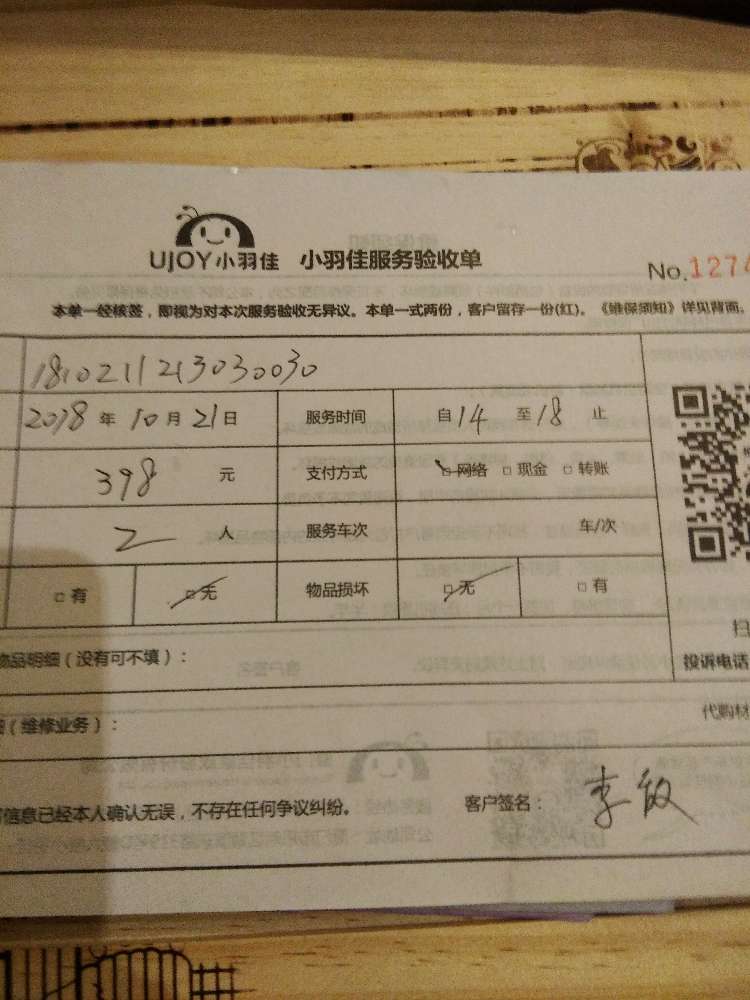 UJOY小羽佳 小羽佳服务验收单
No.1274
本单一经核签，即视为对本次服务验收无异议。本单一式两份，客户留存一份(红)。《维保须知》详见背面。
181021121303030030
2018年10月21日 服务时间 自14至18止
398元 支付方式 □网络 □现金 □转账
2人 服务车次 车/次
□有 □无 物品损坏 □无 □有
扫
物品明细（没有可不填）： 投诉电话
（维修业务）： 代购材
信息已经本人确认无误，不存在任何争议纠纷。 客户签名：李敏